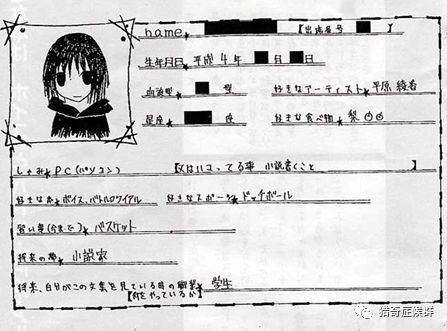 name★ 【出席番号 】
生年月日★ 平成4年 月 日
血液型★ 型 好きなアーティスト★平原綾香
星座★ 座 好きな食べ物★ 梨
しゅみ★PC(パソコン) 【又はハマってる事 小説書くこと 】
好きな本★ボイス、バトルロワイアル 好きなスポーツ★ドッチボール
習い事(今まで)★バスケット
将来の夢★ 小説家
将来、自分がこの文集を見ている時の職業★学生
【何をやっているか】
猎奇症候群